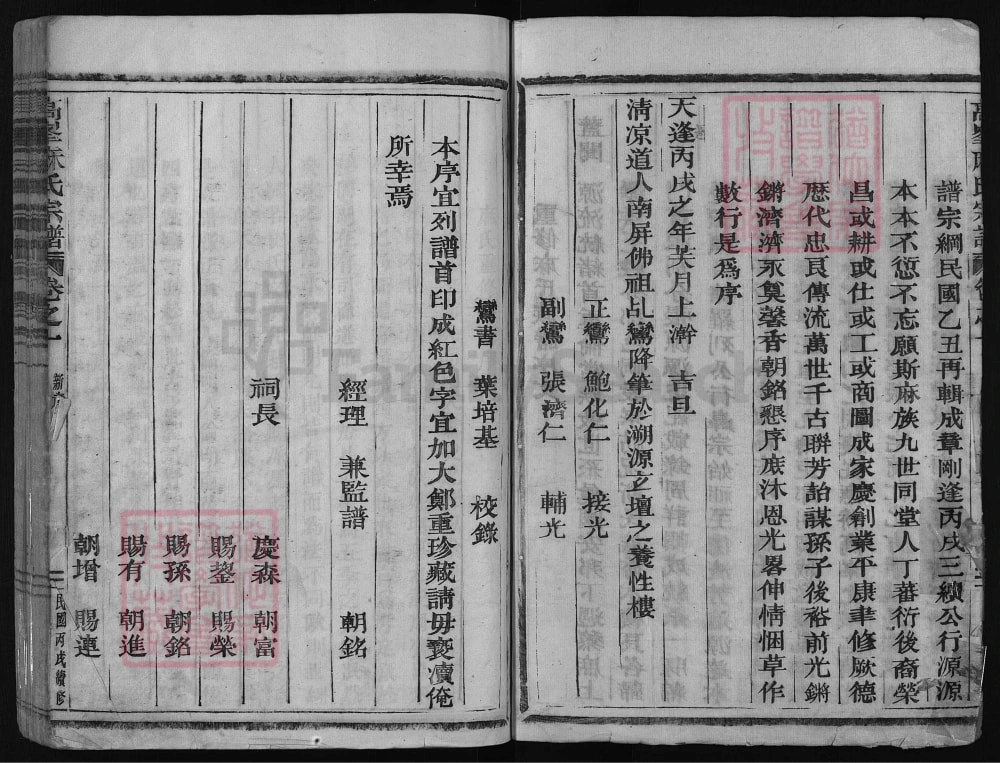 譜宗綱民國乙丑再輯成章剛逢丙戌三續公行源源
本本不愆不忘願斯麻族九世同堂人丁蕃衍後裔榮
昌或耕或仕或工或商圖成家慶創業平康聿修厥德
歴代忠良傳流萬世千古聯芳詒謀孫子後裕前光鏘
鏘濟濟永奠馨香朝銘懇序庶沐恩光畧伸情悃草作
數行是爲序
天逢丙戌之年芙月上澣 吉旦
清凉道人南屏佛祖乩鸞降筆於溯源玄壇之養性樓
正鸞 鮑化仁 接光
副鸞 張濟仁 輔光
鸞書 葉培基 校錄
本序宜列譜首印成紅色字宜加大鄭重珍藏請毋褻瀆俺
所幸焉
經理 兼監譜 朝銘
祠長 慶森 朝富
賜鋆 賜榮
賜孫 朝銘
賜有 朝進
朝增 賜連
氏宗譜 卷之一
民國丙戌續修